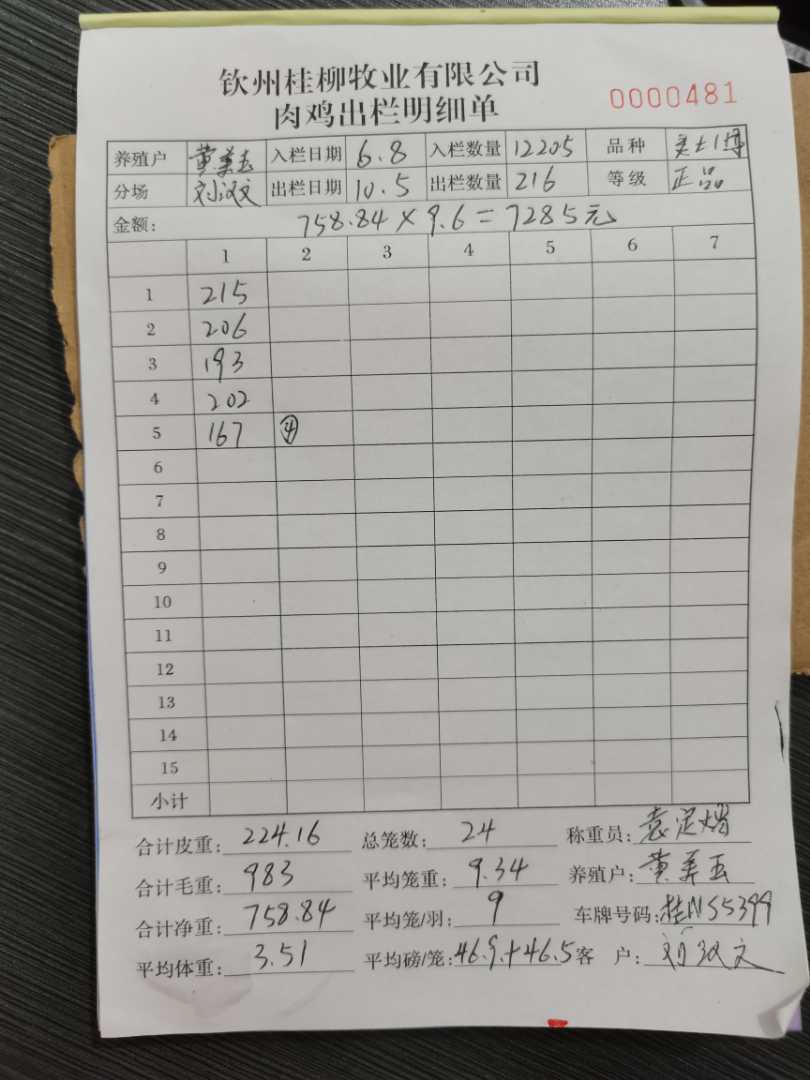 钦州桂柳牧业有限公司
肉鸡出栏明细单 0000481
养殖户 黄美玉 入栏日期 6.8 入栏数量 12205 品种
分场 刘汉文 出栏日期 10.5 出栏数量 216 等级 正品
金额: 758.84×9.6=7285元
1 2 3 4 5 6 7
1 215
2 206
3 193
4 202
5 167 ④
6
7
8
9
10
11
12
13
14
15
小计
合计皮重: 224.16 总笼数: 24 称重员: 袁定
合计毛重: 983 平均笼重: 9.34 养殖户: 黄美玉
合计净重: 758.84 平均笼/羽: 9 车牌号码: 桂NS5399
平均体重: 3.51 平均磅/笼: 46.9+46.5 客户: 刘汉文